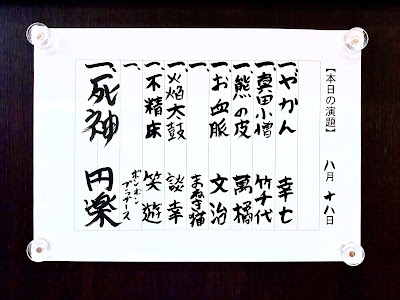 【本日の演題】 八月十八日
一、やかん 幸七
一、真田小僧 竹千代
一、熊の皮 萬橘
一、お血脈 文治
一、 まねき猫
一、火焔太鼓 談幸
一、不精床 笑遊
一、 ボンボン
ブラザース
一、死神 円楽